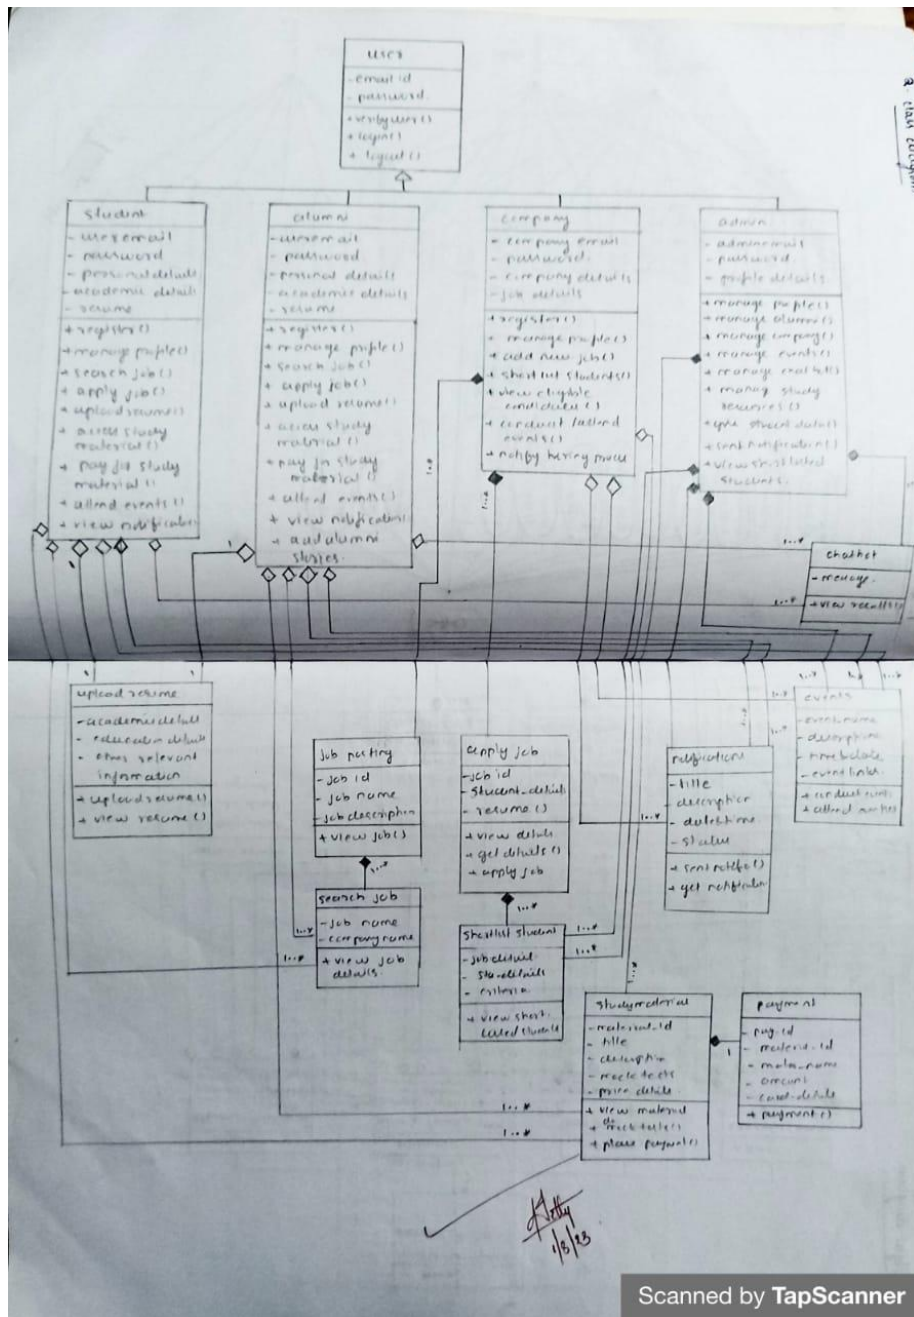 user
- email id
- password
+ verify user()
+ login()
+ logout()
student
- useremail
- password
- personal details
- academic details
- resume
+ register()
+ manage profile()
+ search job()
+ apply job()
+ upload resume()
+ access study
material()
+ pay for study
material()
+ attend events()
+ view notification
alumni
- useremail
- password
- personal details
- academic details
- resume
+ register()
+ manage profile()
+ search job()
+ apply job()
+ upload resume()
+ access study
material()
+ pay for study
material()
+ attend events()
+ view notification
+ add alumni
stories
company
- company email
- password
- company details
- job details
+ register()
+ manage profile()
+ add new job()
+ shortlist students()
+ view eligible
candidates()
+ conduct/attend
events()
+ notify hiring
admin
- adminemail
- password
- profile details
+ manage profile()
+ manage alumni()
+ manage company()
+ manage events()
+ manage
+ manag study
resources()
student data()
+ sent notification()
+ view shortlisted
students
1..*
1..*
1
1
1..*
chatbot
- message
1..*
+ view
1
1
upload resume
- academic details
- education details
- other relevant
information
+ upload resume()
+ view resume()
job posting
- job id
- job name
- job description
+ view job()
1..*
search job
- job name
- company name
+ view job
details
1..*
1..*
apply job
- job id
- student-details
- resume()
+ view details
+ get details()
+ apply job
1..*
shortlist student
- job detail
- stu-details
- criteria
+ view short
listed students
1..*
1..*
notification
- title
- description
- date & time
- status
+ sent notifi()
+ get notification
1..*
1..*
1..*
1..*
1..*
1..*
1..*
events
- event name
- description
- event links
+ conduct event
+ attend
1..*
studymaterial
- material-id
- title
- description
- mock tests
- price details
+ view material
+ mock tests()
+ place payment()
1..*
1..*
1
payment
- pay.id
- material-id
- mater-name
- amount
- card-details
+ payment()
1/3/23
Scanned by TapScanner